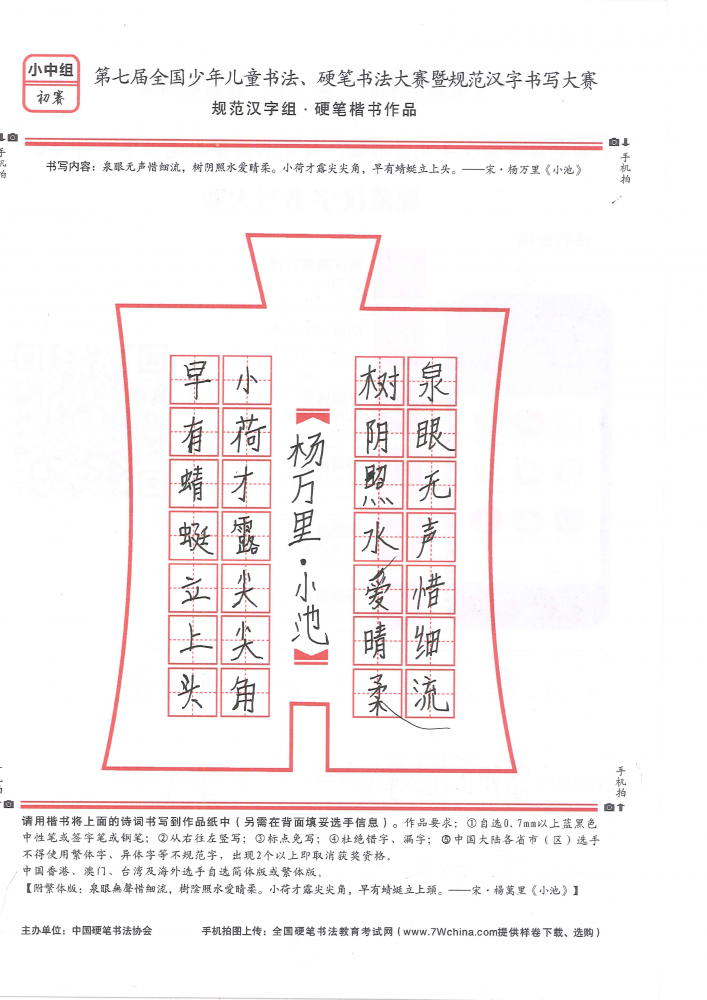 小中组
初赛
第七届全国少年儿童书法、硬笔书法大赛暨规范汉字书写大赛
规范汉字组·硬笔楷书作品
手机拍
手机拍
书写内容：泉眼无声惜细流，树阴照水爱晴柔。小荷才露尖尖角，早有蜻蜓立上头。——宋·杨万里《小池》
泉眼无声惜细流
树阴照水爱晴柔
《杨万里·小池》
小荷才露尖尖角
早有蜻蜓立上头
手机拍
请用楷书将上面的诗词书写到作品纸中（另需在背面填妥选手信息）。作品要求：①自选0.7mm以上蓝黑色
中性笔或签字笔或钢笔；②从右往左竖写；③标点免写；④杜绝错字、漏字；⑤中国大陆各省市（区）选手
不得使用繁体字、异体字等不规范字，出现2个以上即取消获奖资格。
中国香港、澳门、台湾及海外选手自选简体版或繁体版。
【附繁体版：泉眼無聲惜細流，樹陰照水愛晴柔。小荷才露尖尖角，早有蜻蜓立上頭。——宋·楊萬里《小池》】
主办单位：中国硬笔书法协会
手机拍图上传：全国硬笔书法教育考试网（www.7Wchina.com提供样卷下载、选购）